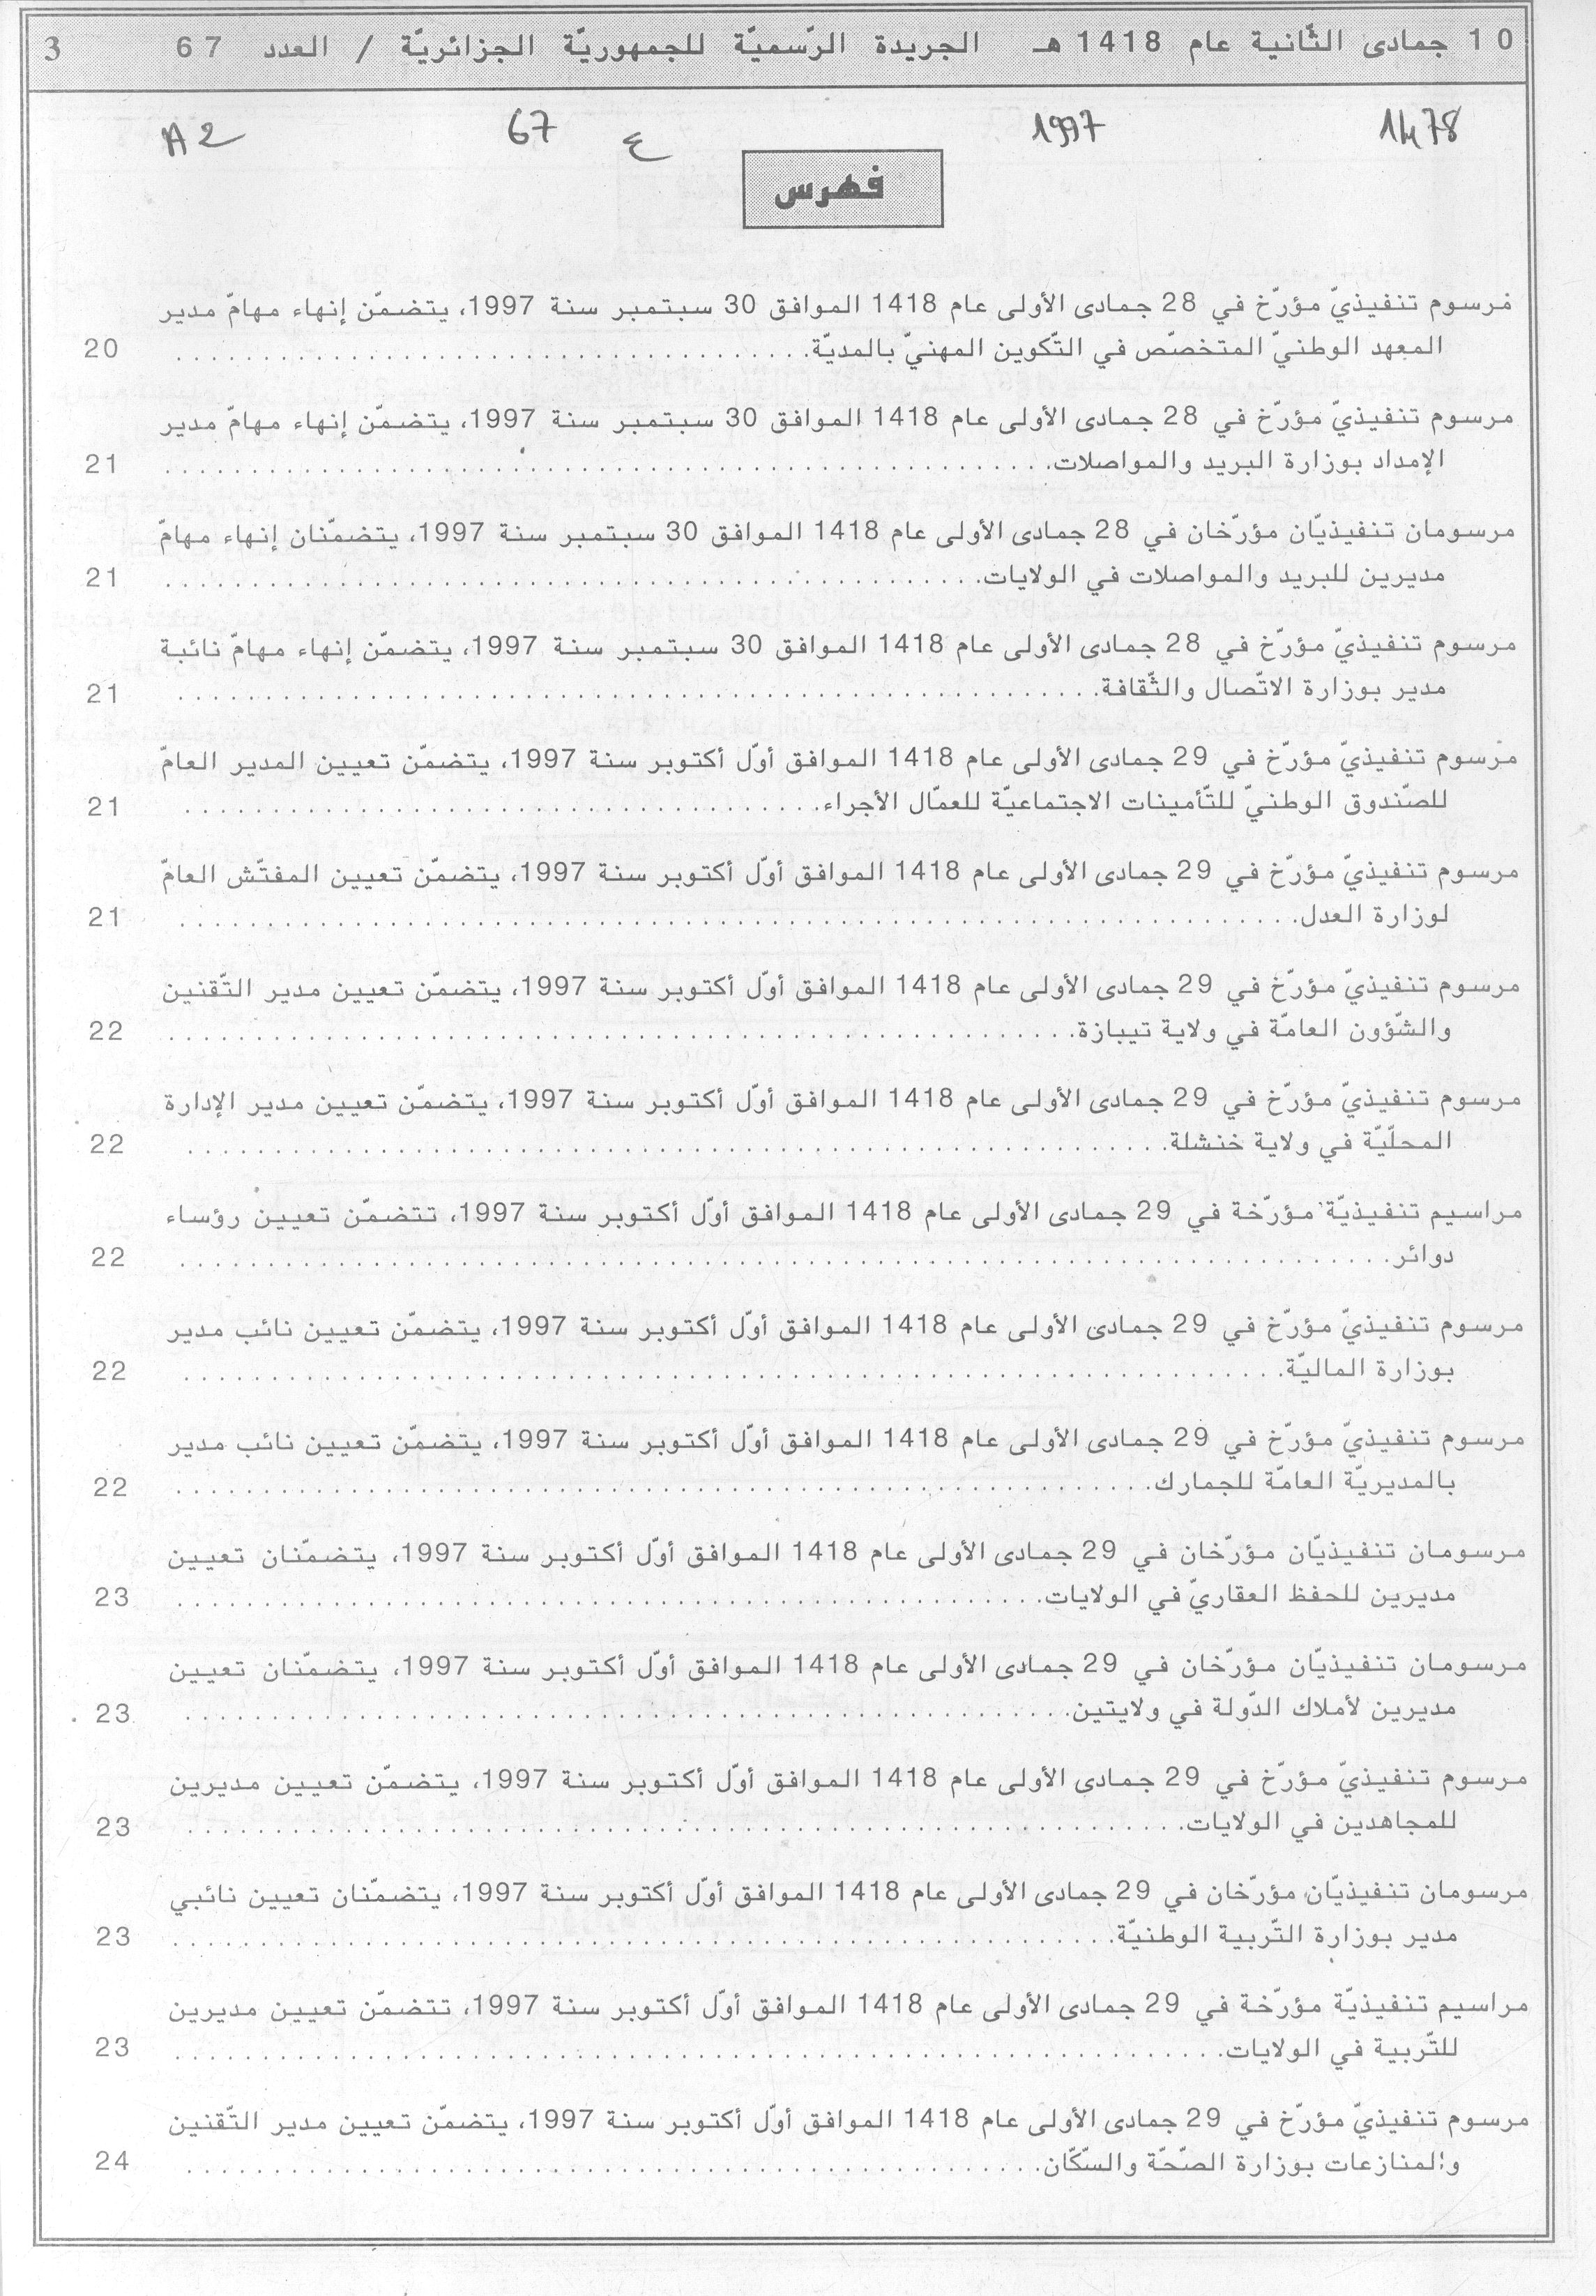 10 جمادى الثّانية عام 1418 هـ الجريدة الرّسميّة للجمهوريّة الجزائريّة / العدد 67 3
1478 1997 ع 67 A2
فهرس
مرسوم تنفيذيّ مؤرّخ في 28 جمادى الأولى عام 1418 الموافق 30 سبتمبر سنة 1997، يتضمّن إنهاء مهامّ مدير
المعهد الوطنيّ المتخصّص في التّكوين المهنيّ بالمديّة. 20
مرسوم تنفيذيّ مؤرّخ في 28 جمادى الأولى عام 1418 الموافق 30 سبتمبر سنة 1997، يتضمّن إنهاء مهامّ مدير
الإمداد بوزارة البريد والمواصلات. 21
مرسومان تنفيذيّان مؤرّخان في 28 جمادى الأولى عام 1418 الموافق 30 سبتمبر سنة 1997، يتضمّنان إنهاء مهامّ
مديرين للبريد والمواصلات في الولايات. 21
مرسوم تنفيذيّ مؤرّخ في 28 جمادى الأولى عام 1418 الموافق 30 سبتمبر سنة 1997، يتضمّن إنهاء مهامّ نائبة
مدير بوزارة الاتّصال والثّقافة. 21
مرسوم تنفيذيّ مؤرّخ في 29 جمادى الأولى عام 1418 الموافق أوّل أكتوبر سنة 1997، يتضمّن تعيين المدير العامّ
للصّندوق الوطنيّ للتّأمينات الاجتماعيّة للعمّال الأجراء. 21
مرسوم تنفيذيّ مؤرّخ في 29 جمادى الأولى عام 1418 الموافق أوّل أكتوبر سنة 1997، يتضمّن تعيين المفتّش العامّ
لوزارة العدل. 21
مرسوم تنفيذيّ مؤرّخ في 29 جمادى الأولى عام 1418 الموافق أوّل أكتوبر سنة 1997، يتضمّن تعيين مدير التّقنين
والشّؤون العامّة في ولاية تيبازة. 22
مرسوم تنفيذيّ مؤرّخ في 29 جمادى الأولى عام 1418 الموافق أوّل أكتوبر سنة 1997، يتضمّن تعيين مدير الإدارة
المحلّيّة في ولاية خنشلة. 22
مراسيم تنفيذيّة مؤرّخة في 29 جمادى الأولى عام 1418 الموافق أوّل أكتوبر سنة 1997، تتضمّن تعيين رؤساء
دوائر. 22
مرسوم تنفيذيّ مؤرّخ في 29 جمادى الأولى عام 1418 الموافق أوّل أكتوبر سنة 1997، يتضمّن تعيين نائب مدير
بوزارة الماليّة. 22
مرسوم تنفيذيّ مؤرّخ في 29 جمادى الأولى عام 1418 الموافق أوّل أكتوبر سنة 1997، يتضمّن تعيين نائب مدير
بالمديريّة العامّة للجمارك. 22
مرسومان تنفيذيّان مؤرّخان في 29 جمادى الأولى عام 1418 الموافق أوّل أكتوبر سنة 1997، يتضمّنان تعيين
مديرين للحفظ العقاريّ في الولايات. 23
مرسومان تنفيذيّان مؤرّخان في 29 جمادى الأولى عام 1418 الموافق أوّل أكتوبر سنة 1997، يتضمّنان تعيين
مديرين لأملاك الدّولة في ولايتين. 23
مرسوم تنفيذيّ مؤرّخ في 29 جمادى الأولى عام 1418 الموافق أوّل أكتوبر سنة 1997، يتضمّن تعيين مديرين
للمجاهدين في الولايات. 23
مرسومان تنفيذيّان مؤرّخان في 29 جمادى الأولى عام 1418 الموافق أوّل أكتوبر سنة 1997، يتضمّنان تعيين نائبي
مدير بوزارة التّربية الوطنيّة. 23
مراسيم تنفيذيّة مؤرّخة في 29 جمادى الأولى عام 1418 الموافق أوّل أكتوبر سنة 1997، تتضمّن تعيين مديرين
للتّربية في الولايات. 23
مرسوم تنفيذيّ مؤرّخ في 29 جمادى الأولى عام 1418 الموافق أوّل أكتوبر سنة 1997، يتضمّن تعيين مدير التّقنين
والمنازعات بوزارة الصّحّة والسّكّان. 24